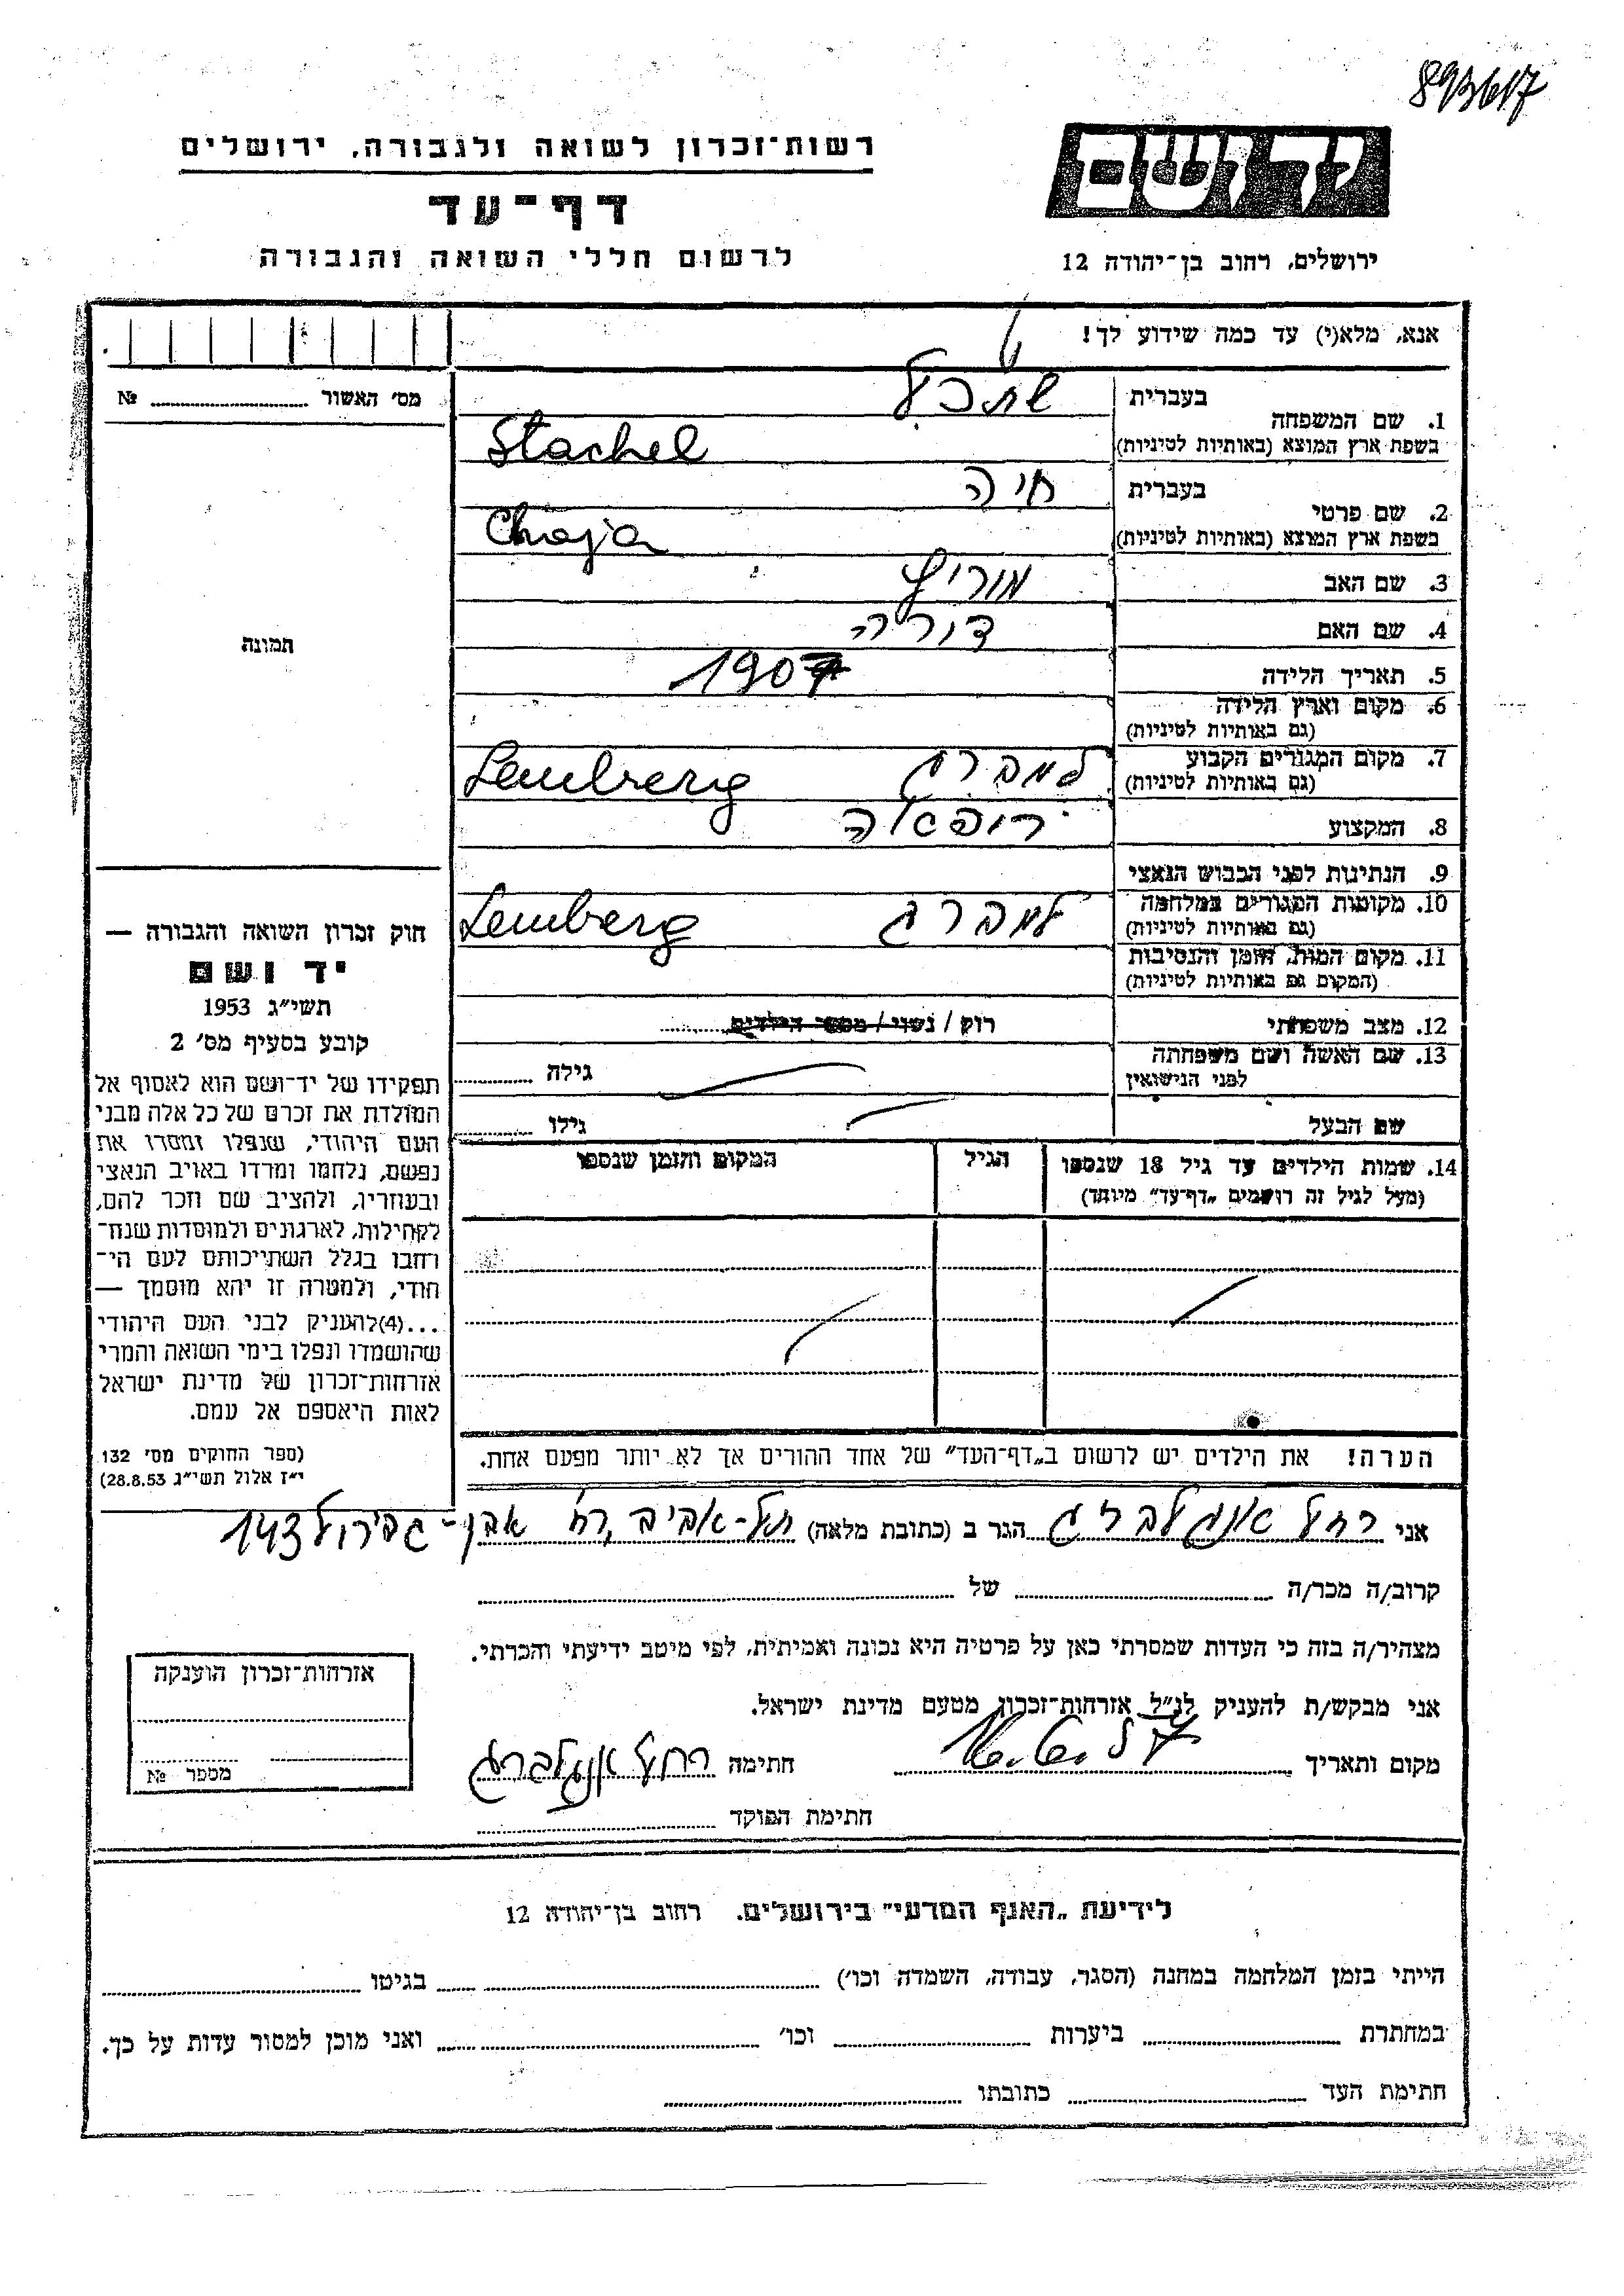 893617
יד ושם
רשות־זכרון לשואה ולגבורה, ירושלים
דף־עד
לרשום חללי השואה והגבורה
ירושלים, רחוב בן־יהודה 12
אנא, מלא(י) עד כמה שידוע לך!
מס׳ האשור № ....................
1. שם המשפחה
בעברית
שתכל
בשפת ארץ המוצא (באותיות לטיניות)
Stachel
2. שם פרטי
בעברית
חיה
בשפת ארץ המוצא (באותיות לטיניות)
Chaja
3. שם האב
מוריץ
4. שם האם
דורה
5. תאריך הלידה
1907
6. מקום וארץ הלידה
(גם באותיות לטיניות)
7. מקום המגורים הקבוע
(גם באותיות לטיניות)
למברג Lemberg
8. המקצוע
רופאה
9. הנתינות לפני הכבוש הנאצי
10. מקומות המגורים במלחמה
(גם באותיות לטיניות)
למברג Lemberg
11. מקום המות, הזמן והנסיבות
(המקום גם באותיות לטיניות)
12. מצב משפחתי
רוק / נשוי / מספר הילדים ..........
13. שם האשה ושם משפחתה
לפני הנישואין
גילה ..........
שם הבעל
גילו ..........
14. שמות הילדים עד גיל 18 שנספו
(מעל לגיל זה רושמים „דף־עד״ מיוחד)
הגיל
המקום והזמן שנספו
הערה! את הילדים יש לרשום ב„דף־העד״ של אחד ההורים אך לא יותר מפעם אחת.
תמונה
חוק זכרון השואה והגבורה —
יד ושם
תשי״ג 1953
קובע בסעיף מס׳ 2
תפקידו של יד־ושם הוא לאסוף אל
המולדת את זכרם של כל אלה מבני
העם היהודי, שנפלו ומסרו את
נפשם, נלחמו ומרדו באויב הנאצי
ובעוזריו, ולהציב שם וזכר להם,
לקהילות, לארגונים ולמוסדות שנח־
רחבו בגלל השתייכותם לעם הי־
הודי, ולמטרה זו יהא מוסמך —
...(4)להעניק לבני העם היהודי
שהושמדו ונפלו בימי השואה והמרי
אזרחות־זכרון של מדינת ישראל
לאות היאספם אל עמם.
(ספר החוקים מס׳ 132
י״ז אלול תשי״ג 28.8.53)
אני רחל אונגלברג הגר ב (כתובת מלאה) תל-אביב, רח׳ אבן-גבירול 143
קרוב/ה מכר/ה .................... של ....................
מצהיר/ה בזה כי העדות שמסרתי כאן על פרטיה היא נכונה ואמיתית, לפי מיטב ידיעתי והכרתי.
אני מבקש/ת להעניק לנ״ל אזרחות־זכרון מטעם מדינת ישראל.
מקום ותאריך
חתימה רחל אונגלברג
חתימת הפוקד ....................
אזרחות־זכרון הוענקה
מספר №
לידיעת „האגף המדעי״ בירושלים. רחוב בן־יהודה 12
הייתי בזמן המלחמה במחנה (הסגר, עבודה, השמדה וכו׳) .................... בגיטו ....................
במחתרת .................... ביערות .................... וכו׳ .................... ואני מוכן למסור עדות על כך.
חתימת העד .................... כתובתו ....................